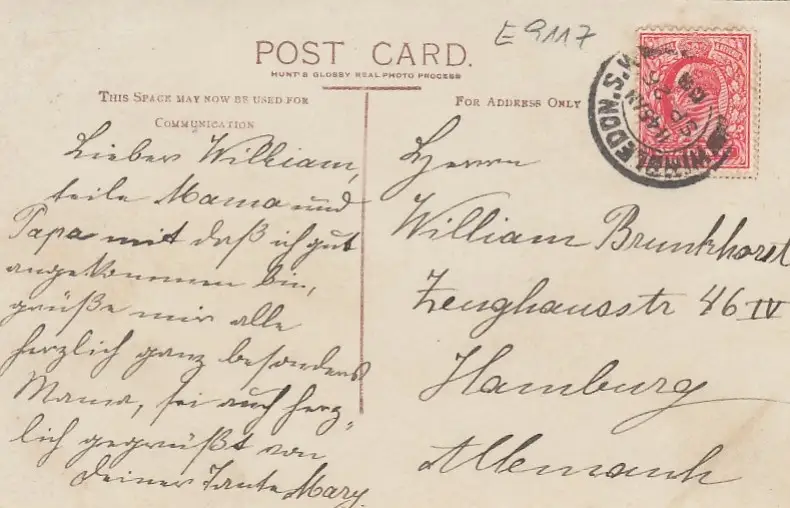 E 9117
POST CARD.
HUNT'S GLOSSY REAL PHOTO PROCESS
THIS SPACE MAY NOW BE USED FOR
COMMUNICATION
FOR ADDRESS ONLY
WIMBLEDON. S.W.
Lieber William,
teile Mama und
Papa mit daß ich gut
angekommen bin,
grüße mir alle
herzlich ganz besonders
Mama, sei auch herz-
lich gegrüßt von
Deiner Tante Mary.
Herrn
William Brunkhorst
Zeughausstr 46 IV
Hamburg
Allemanh